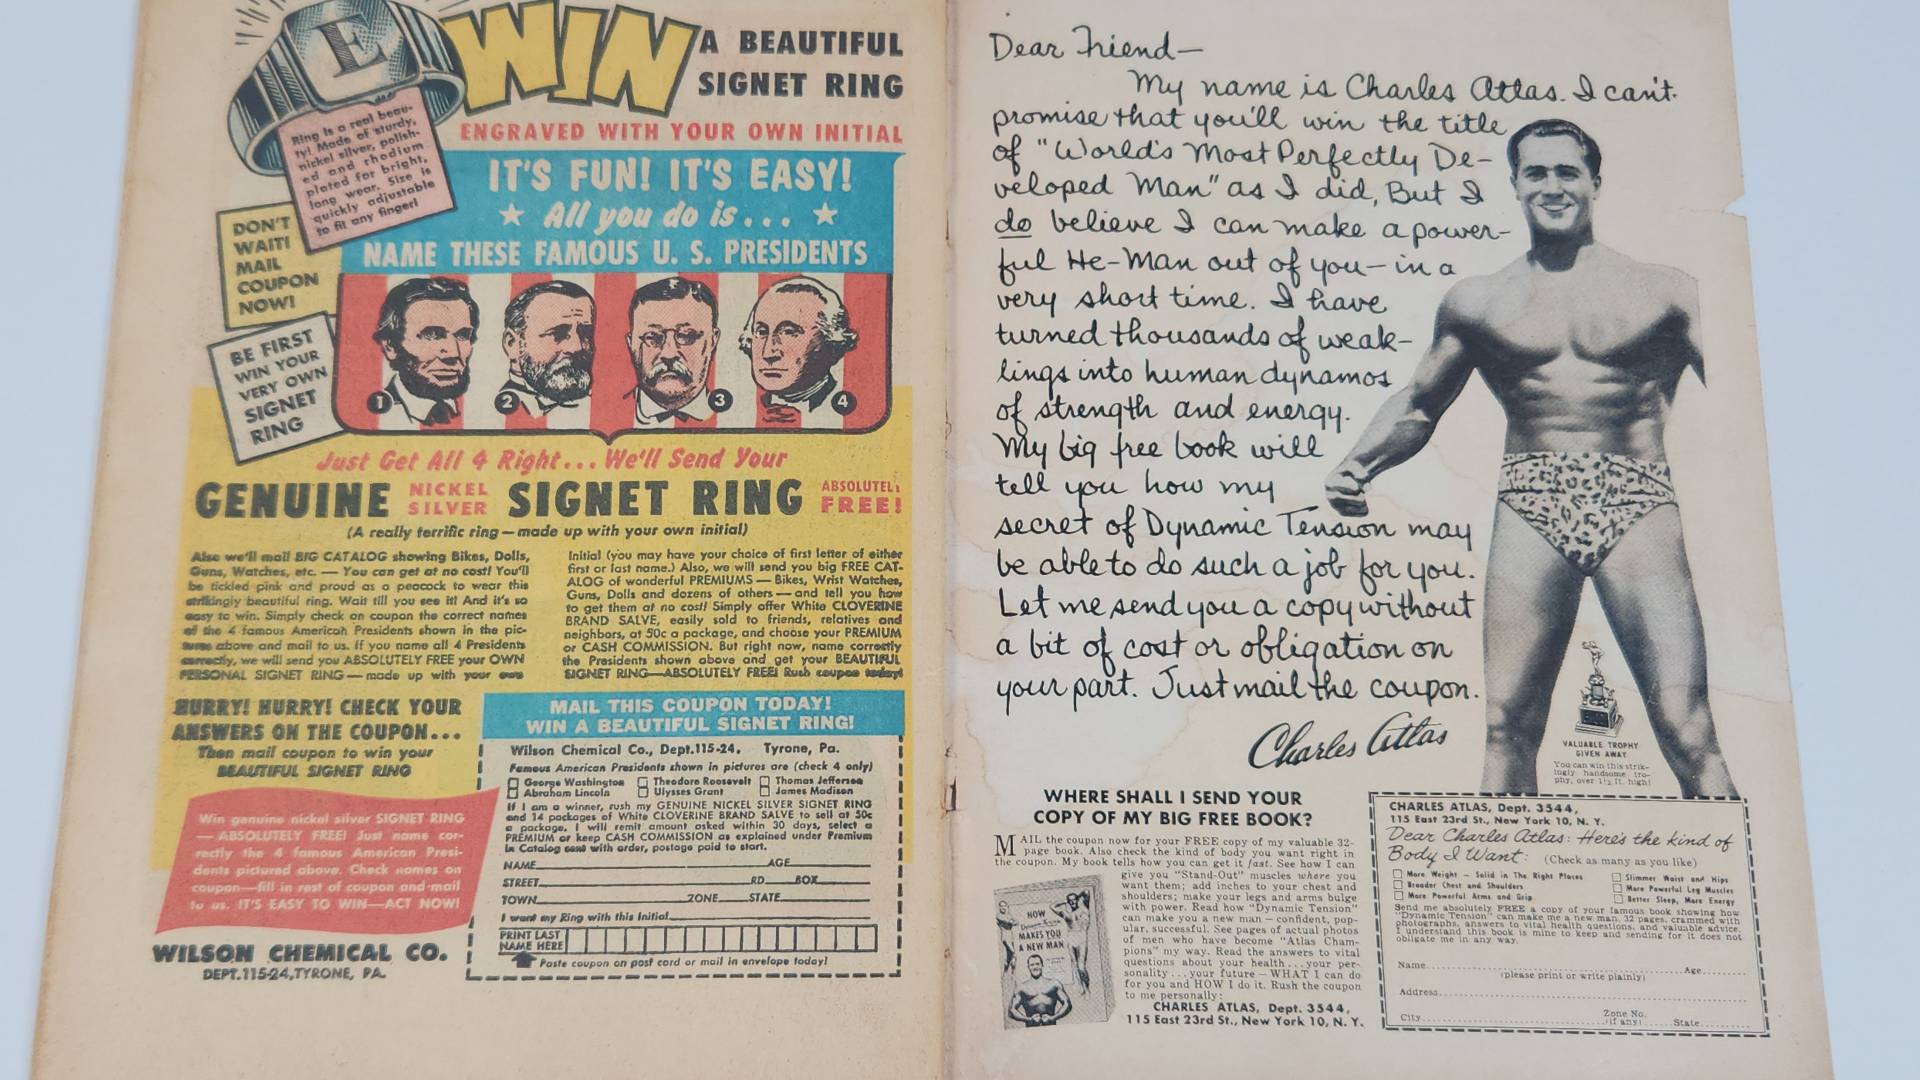 E
WIN
A BEAUTIFUL
SIGNET RING
ENGRAVED WITH YOUR OWN INITIAL
Ring is a real beau-
ty! Made of sturdy,
nickel silver, polish-
ed and rhodium
plated for bright,
long wear. Size is
quickly adjustable
to fit any finger!
DON'T
WAIT!
MAIL
COUPON
NOW!
BE FIRST
WIN YOUR
VERY OWN
SIGNET
RING
IT'S FUN! IT'S EASY!
★ All you do is... ★
NAME THESE FAMOUS U. S. PRESIDENTS
1 2 3 4
Just Get All 4 Right... We'll Send Your
GENUINE NICKEL SILVER SIGNET RING ABSOLUTELY FREE!
(A really terrific ring—made up with your own initial)
Also we'll mail BIG CATALOG showing Bikes, Dolls,
Guns, Watches, etc. — You can get at no cost! You'll
be tickled pink and proud as a peacock to wear this
strikingly beautiful ring. Wait till you see it! And it's so
easy to win. Simply check on coupon the correct names
of the 4 famous American Presidents shown in the pic-
tures above and mail to us. If you name all 4 Presidents
correctly, we will send you ABSOLUTELY FREE your OWN
PERSONAL SIGNET RING—made up with your own
Initial (you may have your choice of first letter of either
first or last name.) Also, we will send you big FREE CAT-
ALOG of wonderful PREMIUMS — Bikes, Wrist Watches,
Guns, Dolls and dozens of others—and tell you how
to get them at no cost! Simply offer White CLOVERINE
BRAND SALVE, easily sold to friends, relatives and
neighbors, at 50c a package, and choose your PREMIUM
or CASH COMMISSION. But right now, name correctly
the Presidents shown above and get your BEAUTIFUL
SIGNET RING—ABSOLUTELY FREE! Rush coupon today!
HURRY! HURRY! CHECK YOUR
ANSWERS ON THE COUPON...
Then mail coupon to win your
BEAUTIFUL SIGNET RING
Win genuine nickel silver SIGNET RING
— ABSOLUTELY FREE! Just name cor-
rectly the 4 famous American Presi-
dents pictured above. Check names on
coupon—fill in rest of coupon and mail
to us. IT'S EASY TO WIN—ACT NOW!
WILSON CHEMICAL CO.
DEPT.115-24,TYRONE, PA.
MAIL THIS COUPON TODAY!
WIN A BEAUTIFUL SIGNET RING!
Wilson Chemical Co., Dept.115-24, Tyrone, Pa.
Famous American Presidents shown in pictures are (check 4 only)
George Washington Theodore Roosevelt Thomas Jefferson
Abraham Lincoln Ulysses Grant James Madison
If I am a winner, rush my GENUINE NICKEL SILVER SIGNET RING
and 14 packages of White CLOVERINE BRAND SALVE to sell at 50c
a package. I will remit amount asked within 30 days, select a
PREMIUM or keep CASH COMMISSION as explained under Premium
in Catalog sent with order, postage paid to start.
NAME AGE
STREET RD BOX
TOWN ZONE STATE
I want my Ring with this Initial
PRINT LAST
NAME HERE
Paste coupon on post card or mail in envelope today!
Dear Friend—
My name is Charles Atlas. I can't
promise that you'll win the title
of "World's Most Perfectly De-
veloped Man" as I did, But I
do believe I can make a power-
ful He-Man out of you—in a
very short time. I have
turned thousands of weak-
lings into human dynamos
of strength and energy.
My big free book will
tell you how my
secret of Dynamic Tension may
be able to do such a job for you.
Let me send you a copy without
a bit of cost or obligation on
your part. Just mail the coupon.
Charles Atlas
VALUABLE TROPHY
GIVEN AWAY
You can win this strik-
ingly handsome tro-
phy, over 1½ ft. high!
WHERE SHALL I SEND YOUR
COPY OF MY BIG FREE BOOK?
MAIL the coupon now for your FREE copy of my valuable 32-
page book. Also check the kind of body you want right in
the coupon. My book tells how you can get it fast. See how I can
give you "Stand-Out" muscles where you
want them; add inches to your chest and
shoulders; make your legs and arms bulge
with power. Read how "Dynamic Tension"
can make you a new man — confident, pop-
ular, successful. See pages of actual photos
of men who have become "Atlas Cham-
pions" my way. Read the answers to vital
questions about your health...your per-
sonality...your future—WHAT I can do
for you and HOW I do it. Rush the coupon
to me personally:
CHARLES ATLAS, Dept. 3544,
115 East 23rd St., New York 10, N. Y.
NOW
MAKES YOU
A NEW MAN
CHARLES ATLAS, Dept. 3544,
115 East 23rd St., New York 10, N. Y.
Dear Charles Atlas: Here's the kind of
Body I Want: (Check as many as you like)
More Weight - Solid in The Right Places
Broader Chest and Shoulders
More Powerful Arms and Grip
Slimmer Waist and Hips
More Powerful Leg Muscles
Better Sleep, More Energy
Send me absolutely FREE a copy of your famous book showing how
"Dynamic Tension" can make me a new man. 32 pages, crammed with
photographs, answers to vital health questions, and valuable advice.
I understand this book is mine to keep and sending for it does not
obligate me in any way.
Name Age
(please print or write plainly)
Address
City Zone No. (if any) State